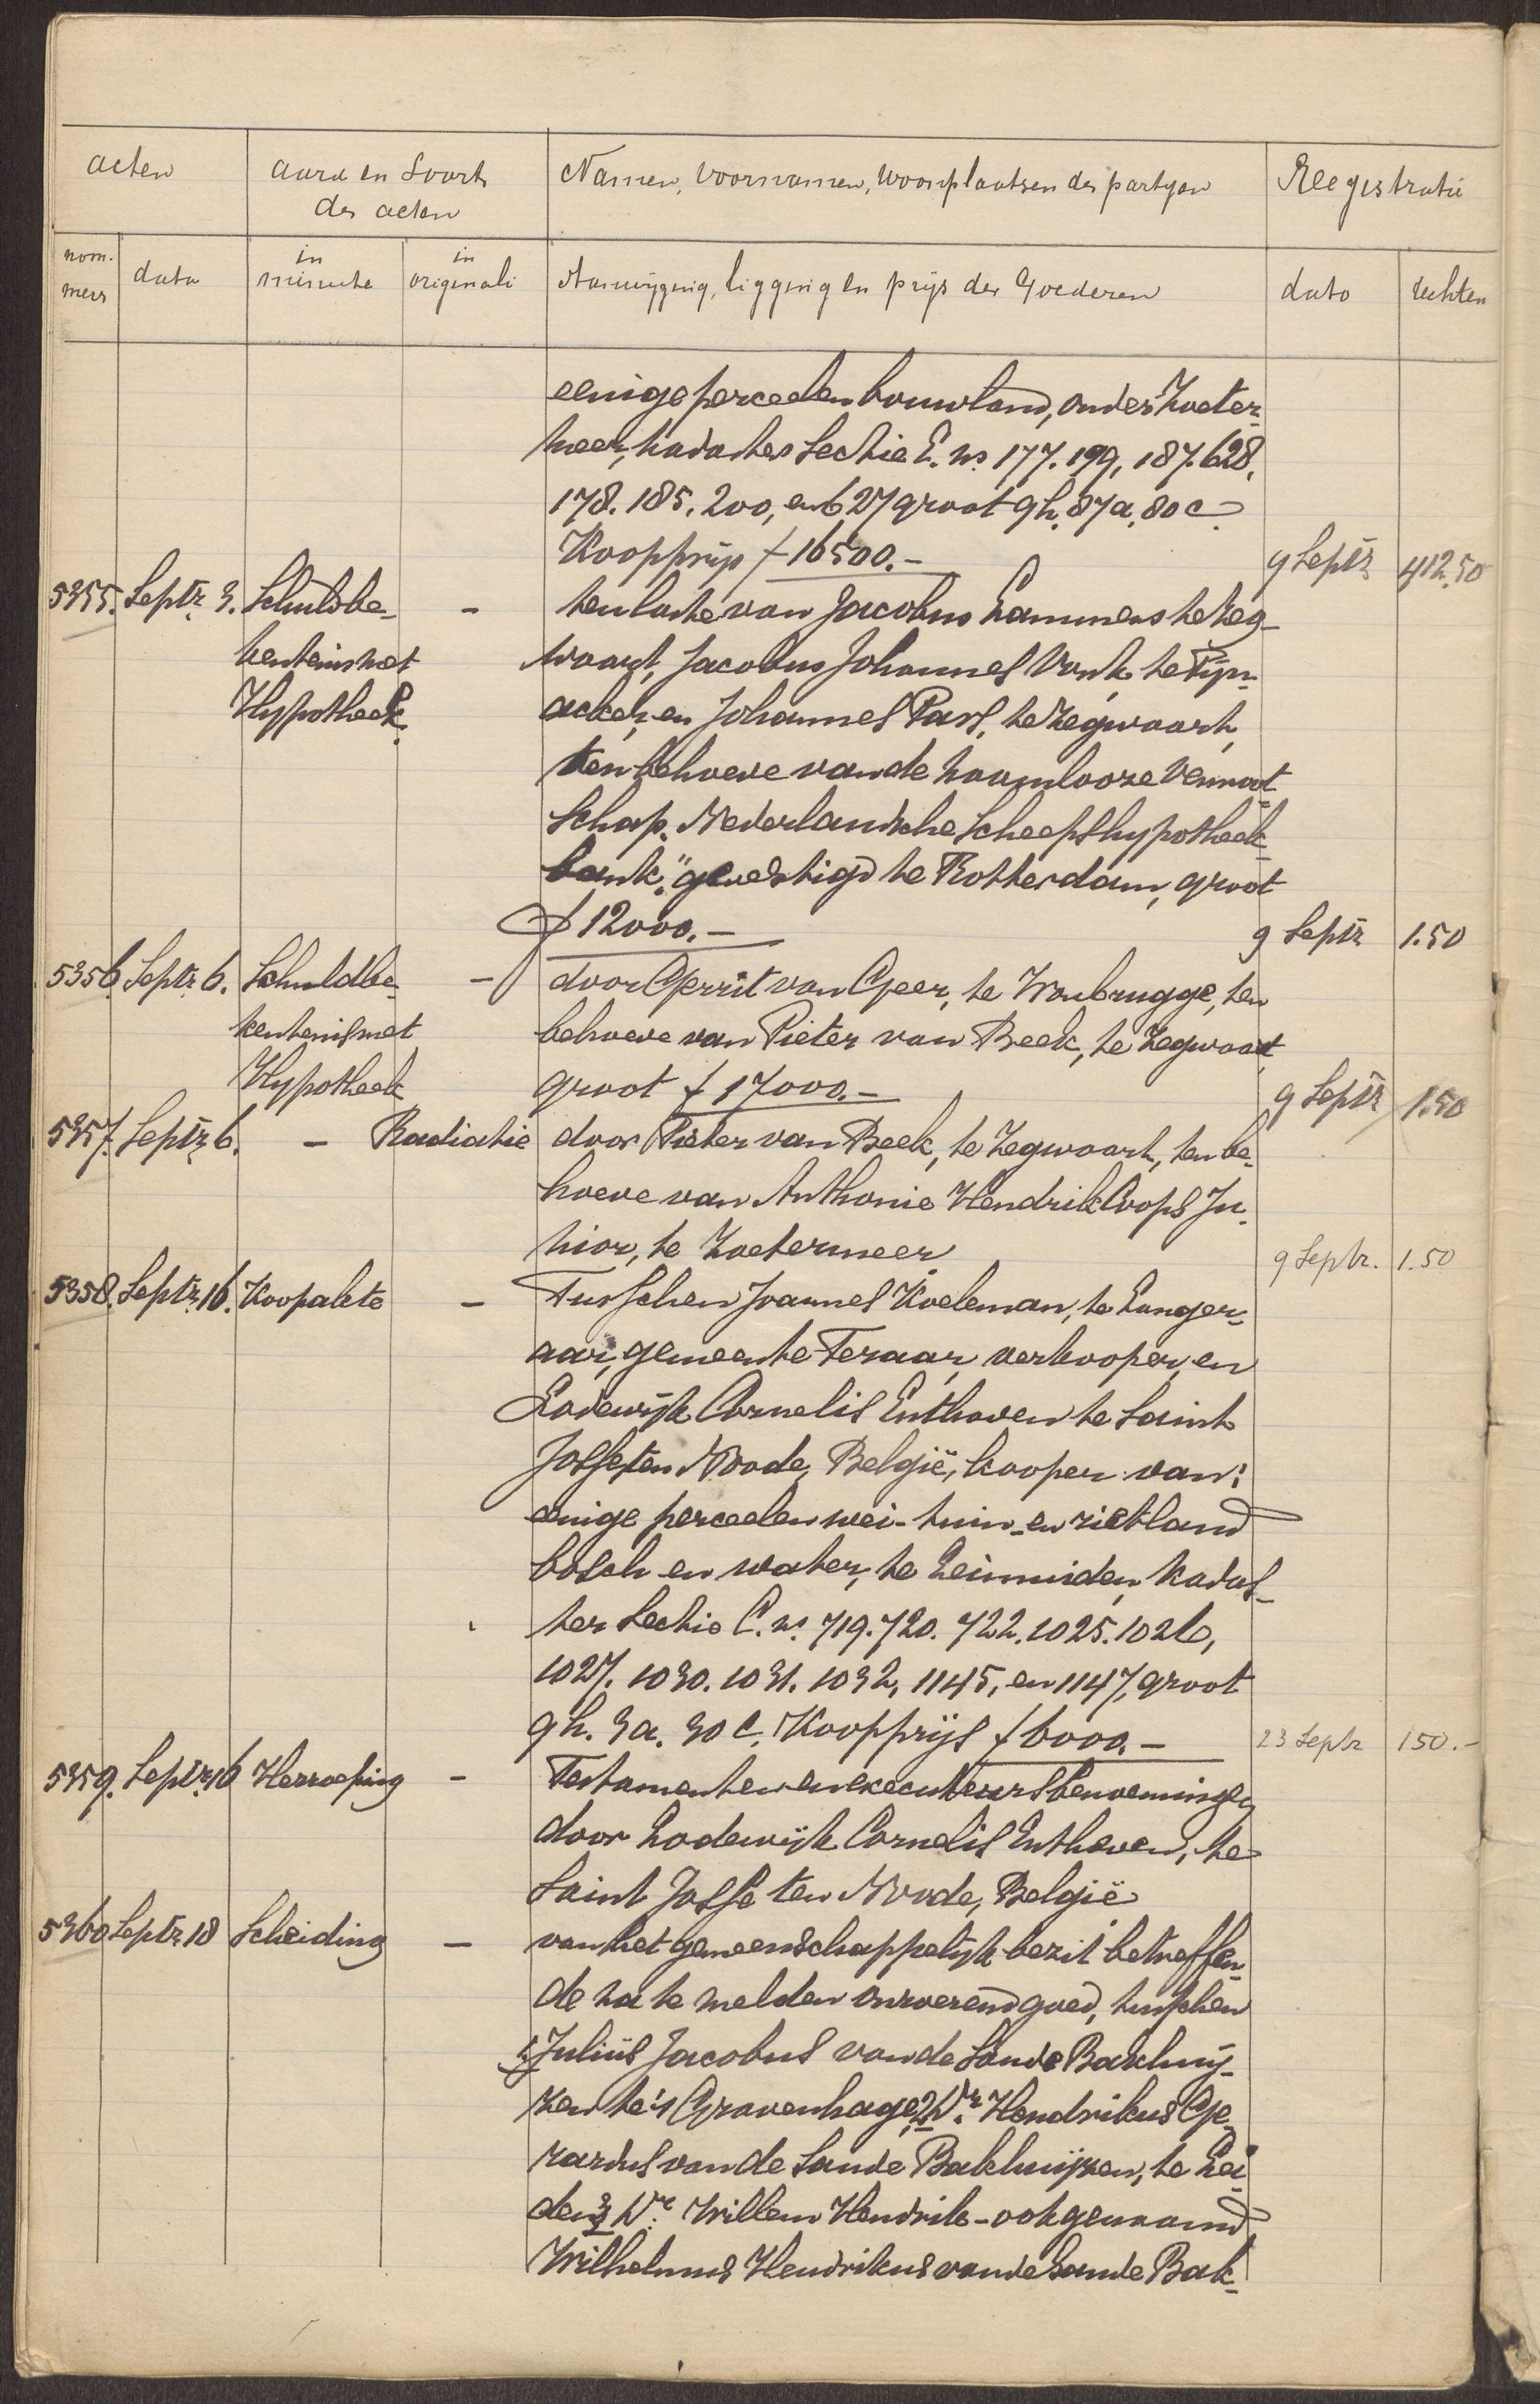 acten
aard en Soort
des acten
Namen, Voornamen, Woonplaatsen des partyen
Registratie
nom-
mers
data
in
minute
in
originali
Aanwijzing, ligging en prijs der Goederen
dato
rechten
eenige perceelen bouwland, onder Zoeter-
meer, kadaster Sectie E. ns 177. 199, 187. 628,
178. 185. 200, en 627 groot 9h. 87a. 80c
Koopprijs f 16500.- 9 Septr 412.50
5355. Septr 3. Schuldbe- - ten laste van Jacobus Lammens te Zeg-
kentenis met waart, Jacobus Johannes Vonk te Pijn-
Hypotheek. acker, en Johannes Pars, te Zegwaart,
ten behoeve van de naamlooze Vennoot-
schap "Nederlandsche Scheepshypotheek-
bank," gevestigd te Rotterdam, groot
f 12000.- 9 Septr 1.50
5356 Septr 6. Schuldbe- - door Gerrit van Geer, te Woubrugge, ten
kentenis met behoeve van Pieter van Beek, te Zegwaart,
Hypotheek groot f 17000.- 9 Septr 1.50
5357. Septr 6. - Radiatie door Pieter van Beek, te Zegwaart, ten be-
hoeve van Anthonie Hendrik Coops Ju-
nior, te Zoetermeer. 9 Septr. 1.50
5358. Septr 16. Koopakte - Tusschen Joannes Koeleman, te Langer-
aar, gemeente Teraar, verkooper, en
Lodewijk Cornelis Enthoven te Saint
Josse ten Noode, België, kooper van:
eenige perceelen wei- tuin- en rietland
bosch en water, te Leimuiden, kadas-
ter Sectie C. ns. 719. 720. 722. 1025. 1026,
1027. 1030. 1031. 1032, 1145, en 1147, groot
9h. 3a. 30c. Koopprijs f 6000.- 23 Septr 150.-
5359. Septr 16 Herroeping - Testamenten en executeursbenoemingen
door Lodewijk Cornelis Enthoven, te
Saint Josse ten Noode, België
5360 Septr 18 Scheiding - van het gemeenschappelijk bezit betreffen-
de na te melden onroerend goed, tusschen
1/ Julius Jacobus van de Sande Bakhuij-
zen te 's Gravenhage, 2/ Dr. Hendrikus Ge-
rardus van de Sande Bakhuijzen, te Lei-
den 3/ Dr. Willem Hendrik - ook genaamd
Wilhelmus Hendrikus van de Sande Bak-